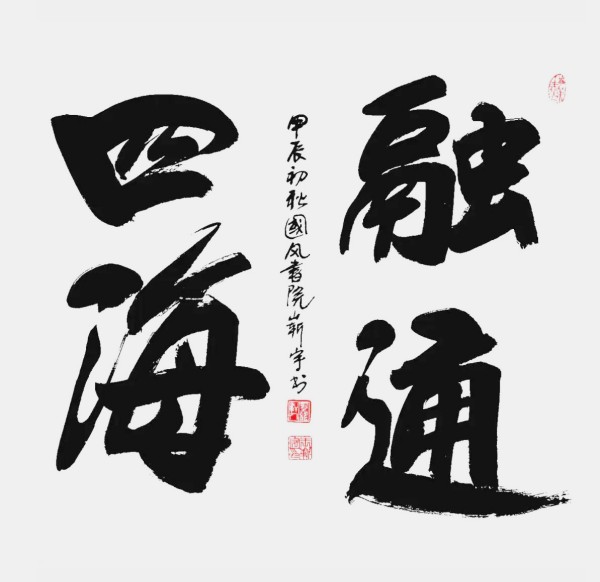 融通
四海
甲辰初秋國风書院嶄宇书